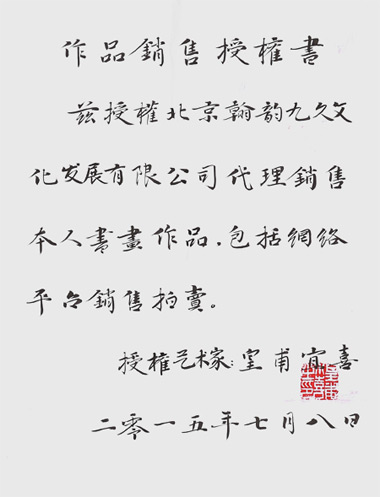 作品銷售授權書
兹授權北京翰韵九久文
化发展有限公司代理銷售
本人書畫作品.包括網絡
平台銷售拍賣。
授權艺术家:皇甫宜喜
二零一五年七月八日